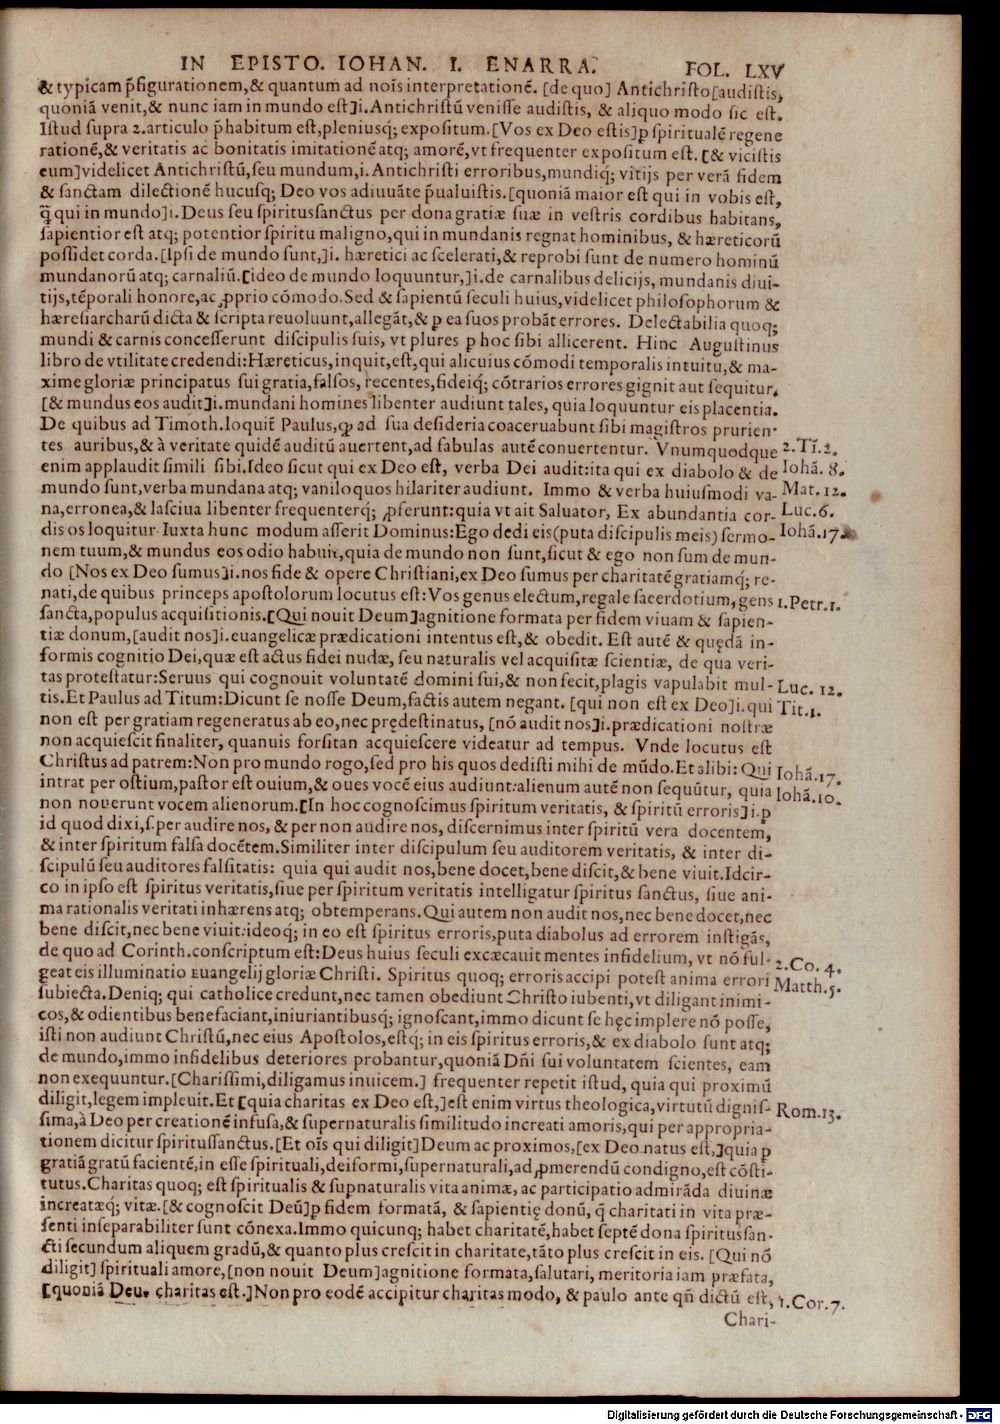 IN EPISTO. IOHAN. I. ENARRA. FOL. LXV
& typicam p̃figurationem,& quantum ad noīs interpretationē. [de quo] Antichristo[audistis,
quoniā venit,& nunc iam in mundo est]i.Antichristū venisse audistis, & aliquo modo sic est.
Istud supra 2.articulo p̃habitum est,pleniusq; expositum.[Vos ex Deo estis]ꝑ spiritualē regene
rationē,& veritatis ac bonitatis imitationē atq; amorē,vt frequenter expositum est. [& vicistis
eum]videlicet Antichristū,seu mundum,i. Antichristi erroribus,mundiq; vitijs per verā fidem
& sanctam dilectionē hucusq; Deo vos adiuuāte p̃ualuistis.[quoniā maior est qui in vobis est,
q̄ qui in mundo]i.Deus seu spiritussanctus per dona gratiæ suæ in vestris cordibus habitans,
sapientior est atq; potentior spiritu maligno,qui in mundanis regnat hominibus, & hæreticorū
possidet corda.[Ipsi de mundo sunt,]i. hæretici ac scelerati,& reprobi sunt de numero hominū
mundanorū atq; carnaliū.[ideo de mundo loquuntur,]i.de carnalibus delicijs, mundanis diui-
tijs,tēporali honore,ac ꝓprio cōmodo.Sed & sapientū seculi huius,videlicet philosophorum &
hæresiarcharū dicta & scripta reuoluunt,allegāt,& ꝑ ea suos probāt errores. Delectabilia quoq;
mundi & carnis concesserunt discipulis suis, vt plures ꝑ hoc sibi allicerent. Hinc Augustinus
libro de vtilitate credendi:Hæreticus,inquit,est,qui alicuius cōmodi temporalis intuitu,& ma-
xime gloriæ principatus sui gratia,falsos, recentes,fideiq; cōtrarios errores gignit aut sequitur.
[& mundus eos audit]i.mundani homines libenter audiunt tales, quia loquuntur eis placentia.
De quibus ad Timoth.loquit̃ Paulus,ꝙ ad sua desideria coaceruabunt sibi magistros prurien-
tes auribus,& à veritate quidē auditū auertent,ad fabulas autē conuertentur. Vnumquodque 2.Ti.2.
enim applaudit simili sibi.Ideo sicut qui ex Deo est, verba Dei audit:ita qui ex diabolo & de Iohā. 8.
mundo sunt,verba mundana atq; vaniloquos hilariter audiunt. Immo & verba huiusmodi va- Mat. 12.
na,erronea,& lasciua libenter frequenterq; ꝓferunt:quia vt ait Saluator, Ex abundantia cor- Luc.6.
dis os loquitur. Iuxta hunc modum asserit Dominus:Ego dedi eis(puta discipulis meis) sermo- Iohā.17.
nem tuum,& mundus eos odio habuit,quia de mundo non sunt,sicut & ego non sum de mun-
do [Nos ex Deo sumus]i.nos fide & opere Christiani,ex Deo sumus per charitatē gratiamq; re-
nati,de quibus princeps apostolorum locutus est:Vos genus electum,regale sacerdotium,gens 1.Petr.1.
sancta,populus acquisitionis.[Qui nouit Deum]agnitione formata per fidem viuam & sapien-
tiæ donum,[audit nos]i.euangelicæ prædicationi intentus est,& obedit. Est autē & quędā in-
formis cognitio Dei,quæ est actus fidei nudæ, seu naturalis vel acquisitæ scientiæ, de qua veri-
tas protestatur:Seruus qui cognouit voluntatē domini sui,& non fecit,plagis vapulabit mul- Luc. 12.
tis.Et Paulus ad Titum:Dicunt se nosse Deum,factis autem negant. [qui non est ex Deo]i.qui Tit.1.
non est per gratiam regeneratus ab eo,nec prędestinatus, [nō audit nos]i.prædicationi nostræ
non acquiescit finaliter, quanuis forsitan acquiescere videatur ad tempus. Vnde locutus est
Christus ad patrem:Non pro mundo rogo,sed pro his quos dedisti mihi de mūdo.Et alibi: Qui Iohā.17.
intrat per ostium,pastor est ouium,& oues vocē eius audiunt:alienum autē non sequūtur, quia Iohā.10.
non nouerunt vocem alienorum.[In hoc cognoscimus spiritum veritatis, & spiritū erroris]i.ꝑ
id quod dixi,s.per audire nos, & per non audire nos, discernimus inter spiritū vera docentem,
& inter spiritum falsa docētem.Similiter inter discipulum seu auditorem veritatis, & inter di-
scipulū seu auditores falsitatis: quia qui audit nos,bene docet,bene discit,& bene viuit.Idcir-
co in ipso est spiritus veritatis,siue per spiritum veritatis intelligatur spiritus sanctus, siue ani-
ma rationalis veritati inhærens atq; obtemperans.Qui autem non audit nos,nec bene docet,nec
bene discit,nec bene viuit:ideoq; in eo est spiritus erroris,puta diabolus ad errorem instigās,
de quo ad Corinth.conscriptum est:Deus huius seculi excæcauit mentes infidelium, vt nō ful- 2.Co. 4.
geat eis illuminatio euangelij gloriæ Christi. Spiritus quoq; erroris accipi potest anima errori Matth.5.
subiecta.Deniq; qui catholice credunt,nec tamen obediunt Christo iubenti,vt diligant inimi-
cos,& odientibus benefaciant,iniuriantibusq; ignoscant,immo dicunt se hęc implere nō posse,
isti non audiunt Christū,nec eius Apostolos,estq; in eis spiritus erroris,& ex diabolo sunt atq;
de mundo,immo infidelibus deteriores probantur,quoniā Dn̄i sui voluntatem scientes, eam
non exequuntur.[Charissimi,diligamus inuicem.] frequenter repetit istud, quia qui proximū
diligit,legem impleuit.Et [quia charitas ex Deo est,]est enim virtus theologica,virtutū dignis- Rom.13.
sima,à Deo per creationē infusa,& supernaturalis similitudo increati amoris,qui per appropria-
tionem dicitur spiritussanctus.[Et oīs qui diligit]Deum ac proximos,[ex Deo natus est,]quia ꝑ
gratiā gratū facientē,in esse spirituali,deiformi,supernaturali,ad ꝓmerendū condigno,est cōsti-
tutus.Charitas quoq; est spiritualis & supnaturalis vita animæ, ac participatio admirāda diuinæ
increatæq; vitæ.[& cognoscit Deū]ꝑ fidem formatā, & sapientię donū, q̄ charitati in vita præ-
senti inseparabiliter sunt cōnexa.Immo quicunq; habet charitatē,habet septē dona spiritussan-
cti secundum aliquem gradū,& quanto plus crescit in charitate,tāto plus crescit in eis. [Qui nō
diligit] spirituali amore,[non nouit Deum]agnitione formata,salutari, meritoria iam præfata,
[quoniā Deus charitas est.]Non pro eodē accipitur charitas modo, & paulo ante qn̄ dictū est, 1.Cor.7.
Chari-
Digitalisierung gefördert durch die Deutsche Forschungsgemeinschaft - DFG